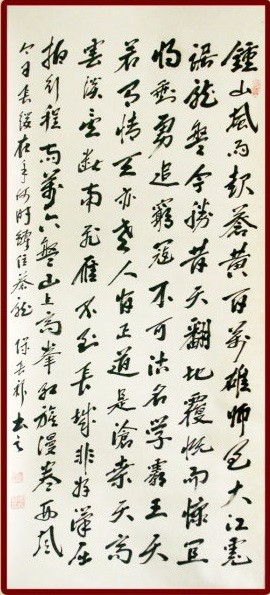 鍾山風雨起蒼黃百萬雄師过大江虎
踞龍盤今勝昔天翻地覆慨而慷宜
將剩勇追窮寇不可沽名學霸王天
若有情天亦老人间正道是滄桑天高
雲淡望斷南飛雁不到長城非好漢屈
指行程兩萬六盤山上高峯紅旗漫卷西風
今日長纓在手何時縛住蒼龍 书之